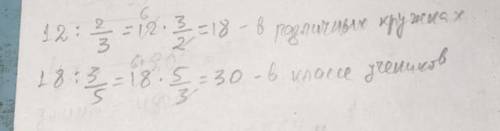 12 : 2/3 = 12 · 3/2 = 18 - в различных кружках
18 : 3/5 = 18 · 5/3 = 30 - в классе учеников